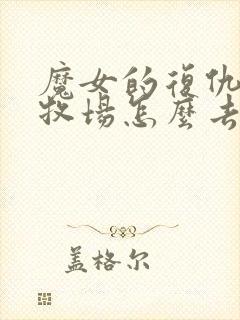 魔女的復仇
牧場怎麼去
盖格尔